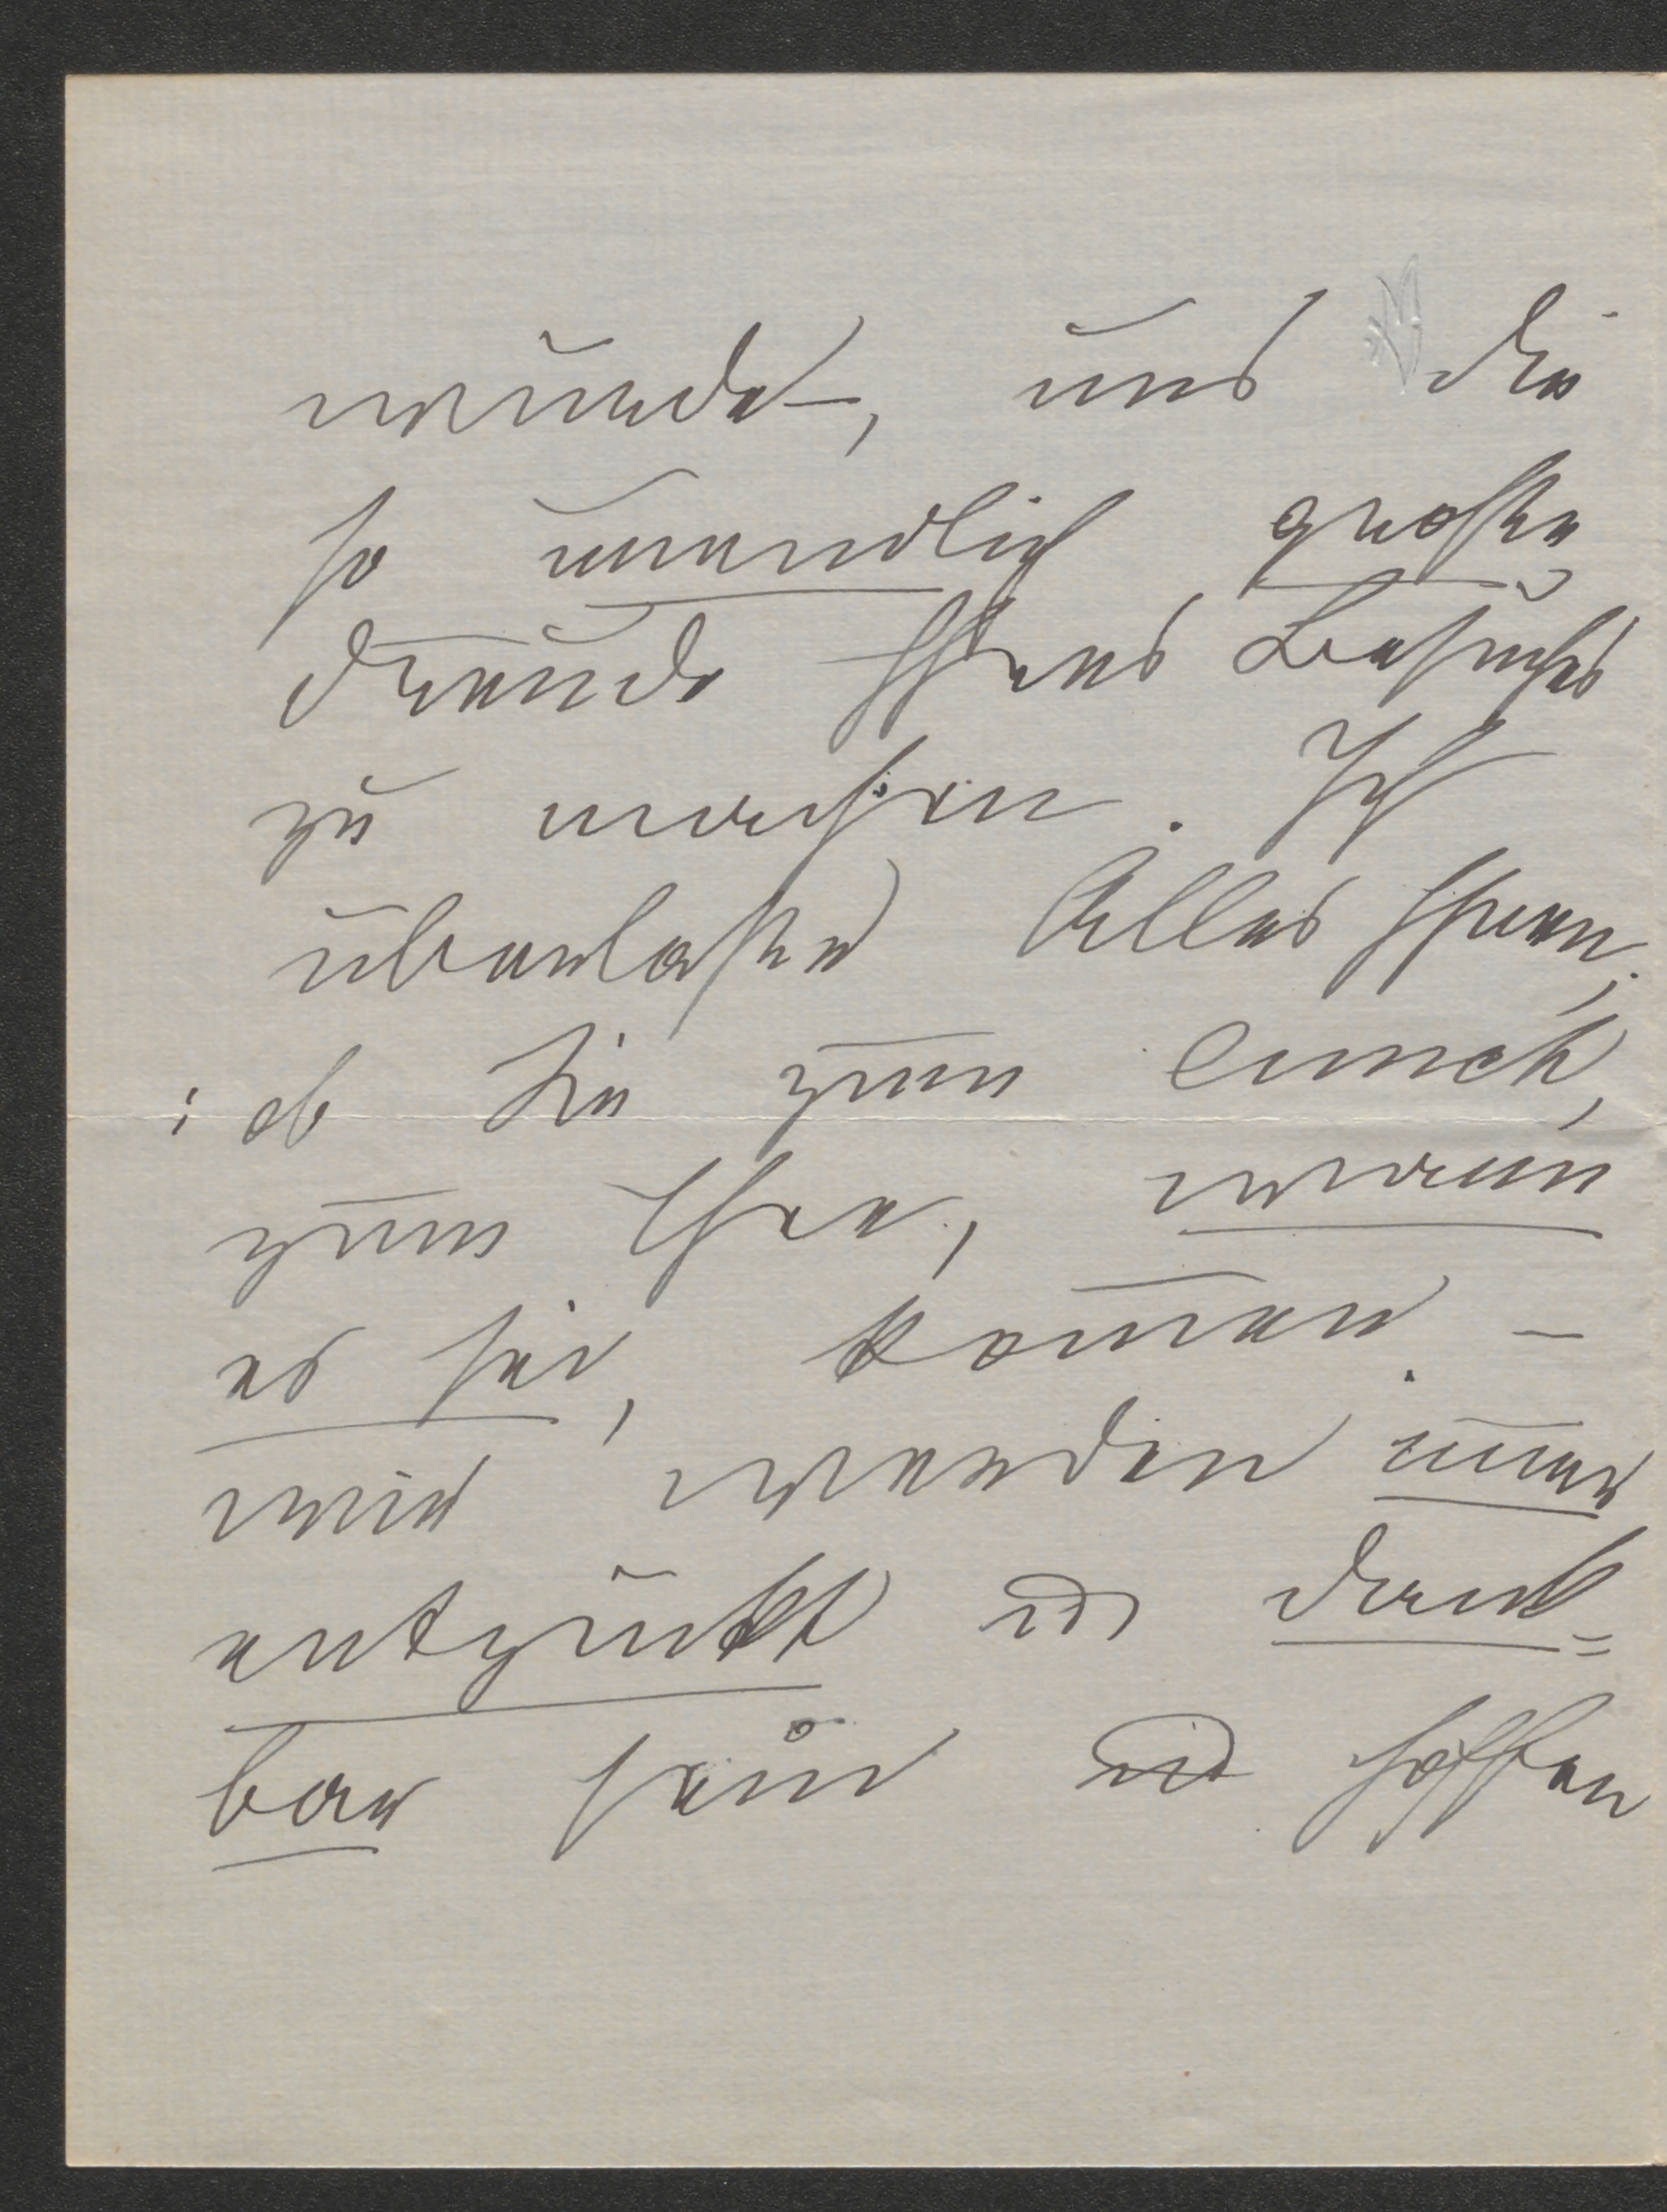 würde –, uns die
so unendlich große
Freude Ihres Besuches
zu machen. Ich
überlasse Alles Ihnen,
: ob Sie zum Lunch,
zum Thee, wann
es sei, kom̄en –
wir werden im̄er
entzückt u. dank=
bar sein u. hoffen